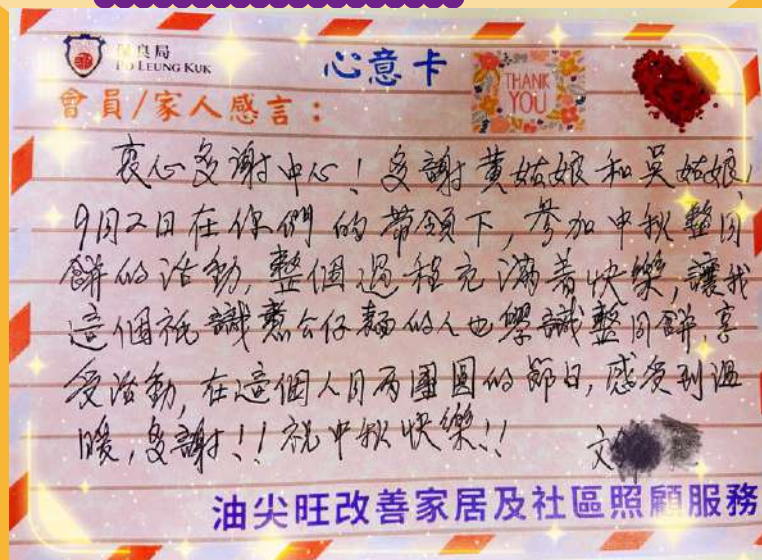 保良局
PO LEUNG KUK
心意卡
THANK
YOU
會員/家人感言：
衷心多謝中心！多謝黃姑娘和吳姑娘，
9月2日在你們的帶領下，參加中秋整月
餅的活動，整個過程充滿着快樂，讓我
這個祗識煮公仔麵的人也學識整月餅，享
受活動，在這個人月兩團圓的節日，感受到溫
暖，多謝！！祝中秋快樂！！
文
油尖旺改善家居及社區照顧服務